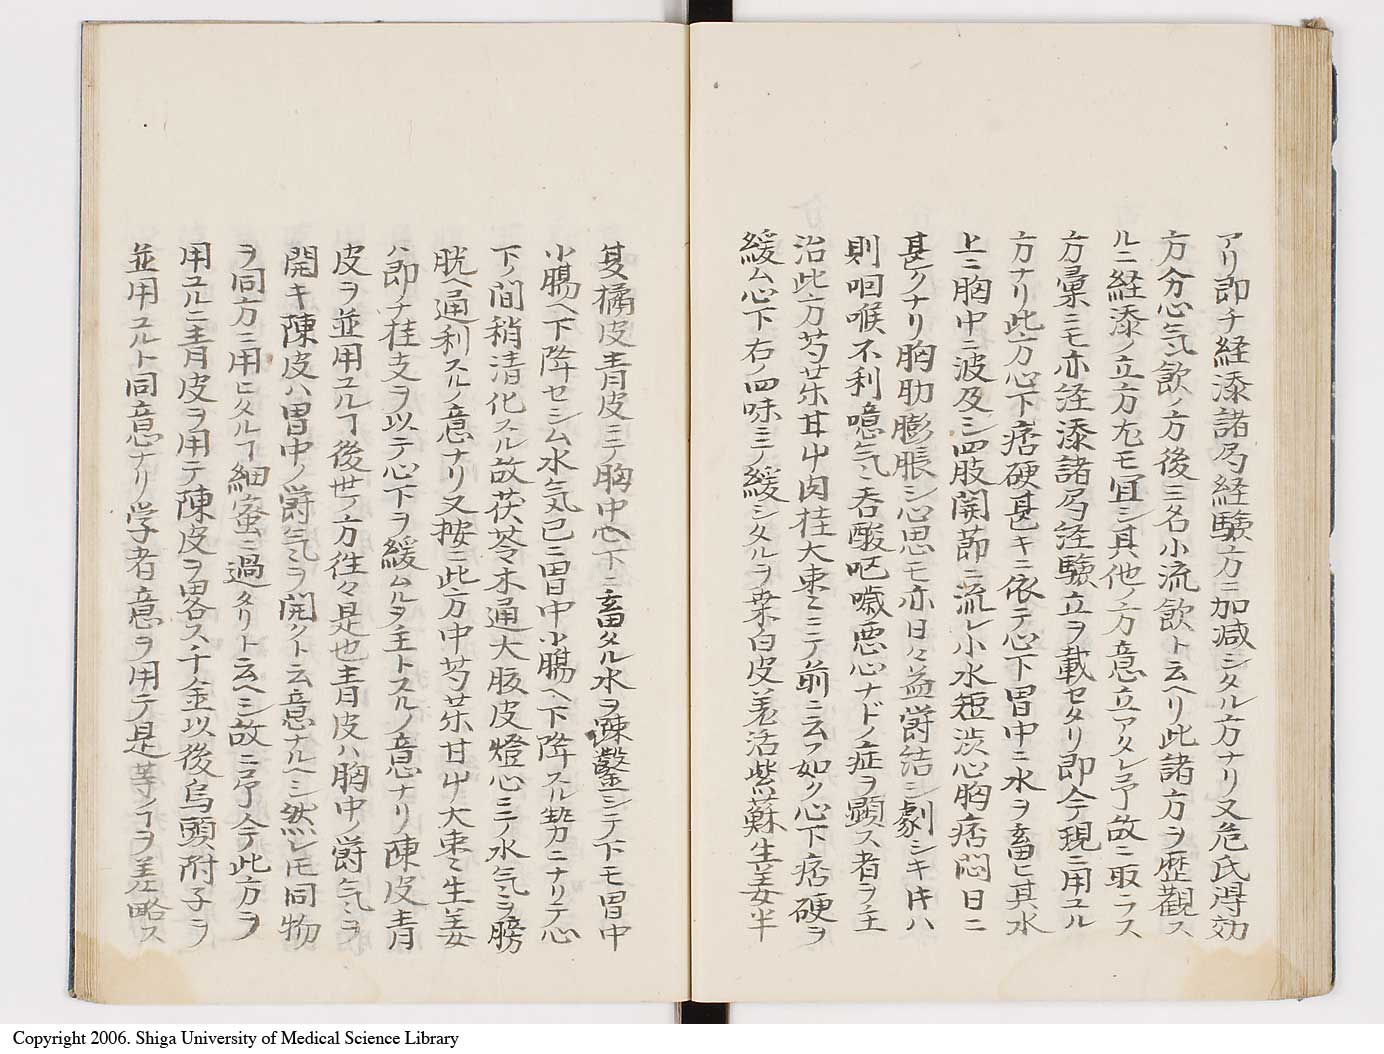 アリ即チ経漆諸局経験方ニ加减シタル方ナリ又危氏得効
方分心气飲ノ方後ニ名小流飲ト云ヘリ此諸方ヲ歴觀ス
ルニ経漆ノ立方尤モ宜シ其他ノ方意立アタレ予故ニ取ラス
方彙ニモ亦経漆諸局経驗立ヲ載セタリ即今テ現ニ用ユル
方ナリ此方心下痞硬甚キニ依テ心下胃中ニ水ヲ畜ヒ其水
上ミ胸中ニ波及シ四肢関節ニ流レ小水短渋心胸痞悶日ニ
甚クナリ胸肋膨脹シ心思モ亦日々益爵結シ劇シキ𪜈ハ
則咽喉不利噫气呑酸吃噦悪心ナドノ症ヲ顕ス者ヲ主
治此方芍薬甘艸肉桂大棗ミニテ前ニ云フ如ク心下痞硬ヲ
緩ム心下右ノ四味ミテ緩シタルヲ桒白皮羌活紫蘇生姜半
夏橘皮青皮ミテ胸中心下ニ畜タル水ヲ疎鑿シテ下モ胃中
小腸ヘ下降セシム水气已ニ胃中小腸ヘ下降スル勢ニナリテ心
下ノ間稍清化スル故茯苓木通大腹皮燈心ミノ水气ヲ膀
胱ヘ通利スルノ意ナリ又按ニ此方中芍薬甘艸大棗ミ生姜
ハ即チ桂支ヲ以テ心下ヲ緩ムルヲ主トスルノ意ナリノ陳皮青
皮ヲ並用ユルヿ後世ノ方往々是也青皮ハ胸中ノ爵气ヲ
開キ陳皮ハ胃中ノ爵气ヲ開クト云意ナルヘシ然レ𪜈同物
ヲ同方ニ用ヒタルヿ細蜜ニ過タリト云ヘシ故ニ予今テ此方ヲ
用ユルニ青皮ヲ用テ陳皮ヲ畧ス千金以後烏頭附子ヲ
並用ユルト同意ナリノ学者意ヲ用テ是等ノヿヲ差略ス
Copyright 2006. Shiga University of Medical Science Library